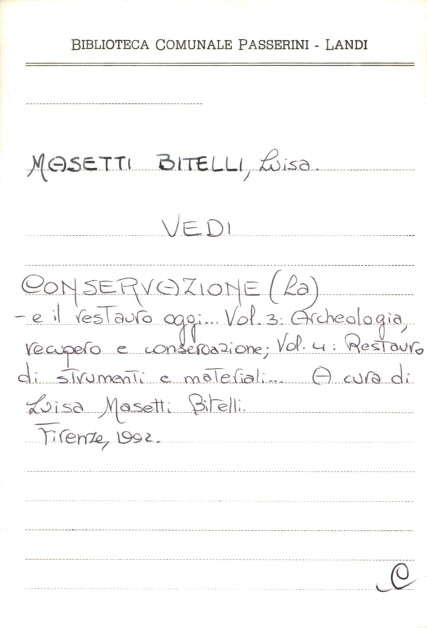 BIBLIOTECA COMUNALE PASSERINI - LANDI
MASETTI BITELLI, Luisa.
VEDI
CONSERVAZIONE (La)
- e il restauro oggi... Vol. 3: Archeologia,
recupero e conservazione; Vol. 4: Restauro
di strumenti e materiali... A cura di
Luisa Masetti Bitelli.
Firenze, 1992.
C